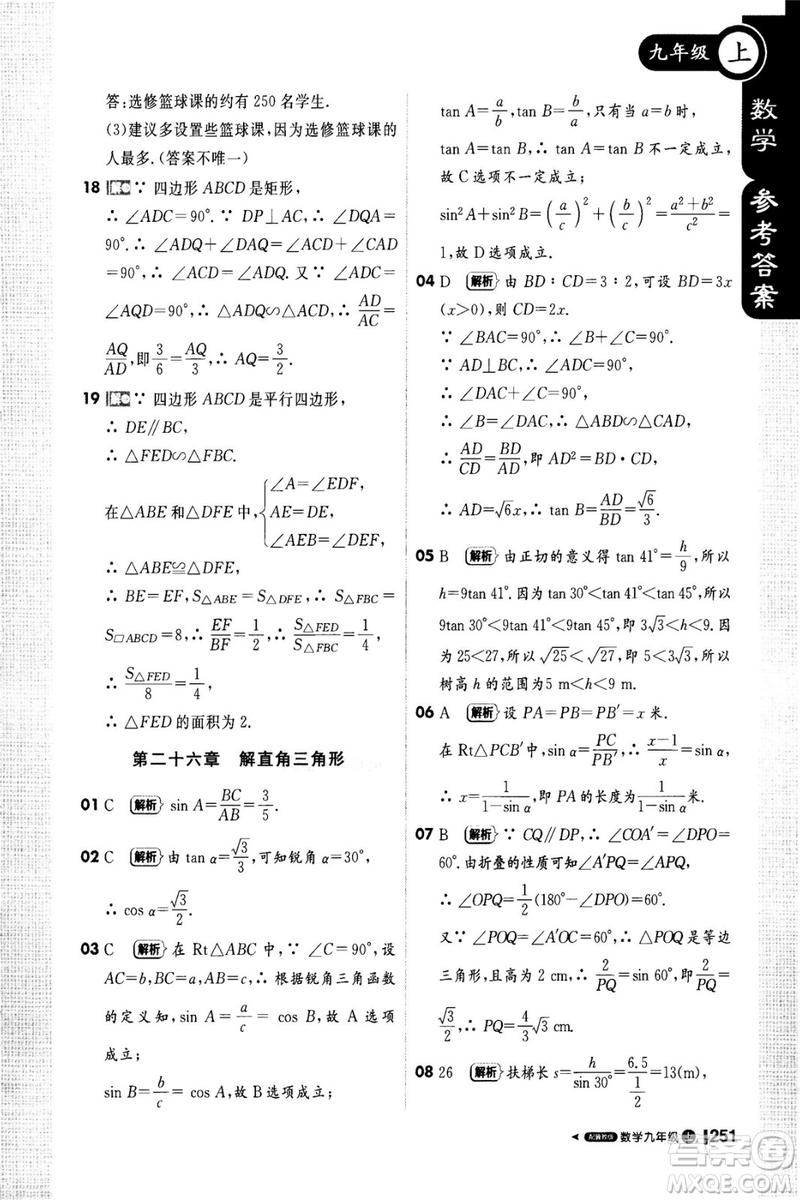 九年级 上
数学 参考答案
答:选修篮球课的约有 250 名学生.
(3)建议多设置些篮球课,因为选修篮球课的
人最多.(答案不唯一)
18 ∵ 四边形 ABCD 是矩形,
∴ ∠ADC=90°. ∵ DP⊥AC, ∴ ∠DQA=
90°, ∴ ∠ADQ+∠DAQ=∠ADC+∠CAD
=90°, ∴ ∠ADQ=∠ACD. 又∵ ∠ADC=
∠AQD=90°, ∴ △ADQ∽△ADC, ∴ AD/AC=
AQ/AD,即 3/6=AQ/3, ∴ AQ=3/2.
19 ∵ 四边形 ABCD 是平行四边形,
∴ DE∥BC,
∴ △FED∽△FBC.
在△ABE 和△DFE 中,{∠A=∠EDF,
AE=DE,
∠AEB=∠DEF,
∴ △ABE≌△DFE,
∴ BE=EF,S△ABE=S△DFE, ∴ S△FBC=
S□ABCD=8, ∴ EF/BF=1/2, ∴ S△FED/S△FBC=1/4,
∴ S△FED/8=1/4,
∴ △FED 的面积为 2.
第二十六章 解直角三角形
01 C 解析 sin A=BC/AB=3/5.
02 C 解析 由 tan α=√3/3,可知锐角 α=30°,
∴ cos α=√3/2.
03 C 解析 在 Rt△ABC 中,∠C=90°,设
AC=b,BC=a,AB=c, ∴ 根据锐角三角函数
的定义知,sin A=a/c=cos B,故 A 选项
成立;
sin B=b/c=cos A,故 B 选项成立;
tan A=a/b,tan B=b/a,只有当 a=b 时,
tan A=tan B, ∴ tan A=tan B 不一定成立,
故 C 选项不一定成立;
sin²A+sin²B=(a/c)²+(b/c)²=(a²+b²)/c²=
1,故 D 选项成立.
04 D 解析 由 BD∶CD=3∶2,可设 BD=3x
(x>0),则 CD=2x.
∵ ∠BAC=90°, ∴ ∠B+∠C=90°.
∵ AD⊥BC, ∴ ∠ADC=∠BDA=90°,
∴ ∠DAC+∠C=90°,
∴ ∠B=∠DAC, ∴ △ABD∽△CAD,
∴ AD/CD=BD/AD,即 AD²=BD·CD=6x²,
∴ AD=√6x, ∴ tan B=AD/BD=√6/3.
05 B 解析 由正切的意义得 tan 41°=h/9,所以
h=9tan 41°.因为 tan 30°<tan 41°<tan 45°,所以
9tan 30°<9tan 41°<9tan 45°,即 3√3<h<9.因
为 25<27,所以 √25<√27,所以 5<3√3,所以
树高 h 的范围为5 m<h<9 m.
06 A 解析 设 PA=PB=PB′=x 米.
在 Rt△PCB′中,sin α=PC/PB′, ∴ (x−1)/x=sin α,
∴ x=1/(1−sin α),即 PA 的长度为1/(1−sin α)米.
07 B 解析 ∵ CQ∥DP, ∴ ∠COA′=∠DPO=
60°.由折叠的性质可知∠A′PQ=∠OPQ,
∴ ∠OPQ=1/2(180°−∠DPO)=60°.
又∵ ∠PQO=∠A′OC=60°, ∴ △OPQ 是等边
三角形,且高为 2 cm, ∴ 2/PQ=sin 60°,即2/PQ=
√3/2, ∴ PQ=4/3√3 cm.
08 26 解析 扶梯长 s=h/sin 30°=6.5/(1/2)=13(m),
配冀教版 数学九年级 上 251
答案圈
MXQE.COM